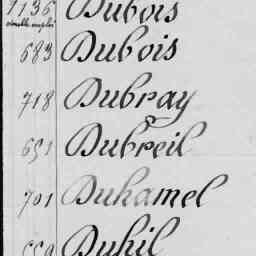 1136 Dubois
double emploi
683 Dubois
718 Dubray
651 Dubreil
701 Duhamel
559 Duhil